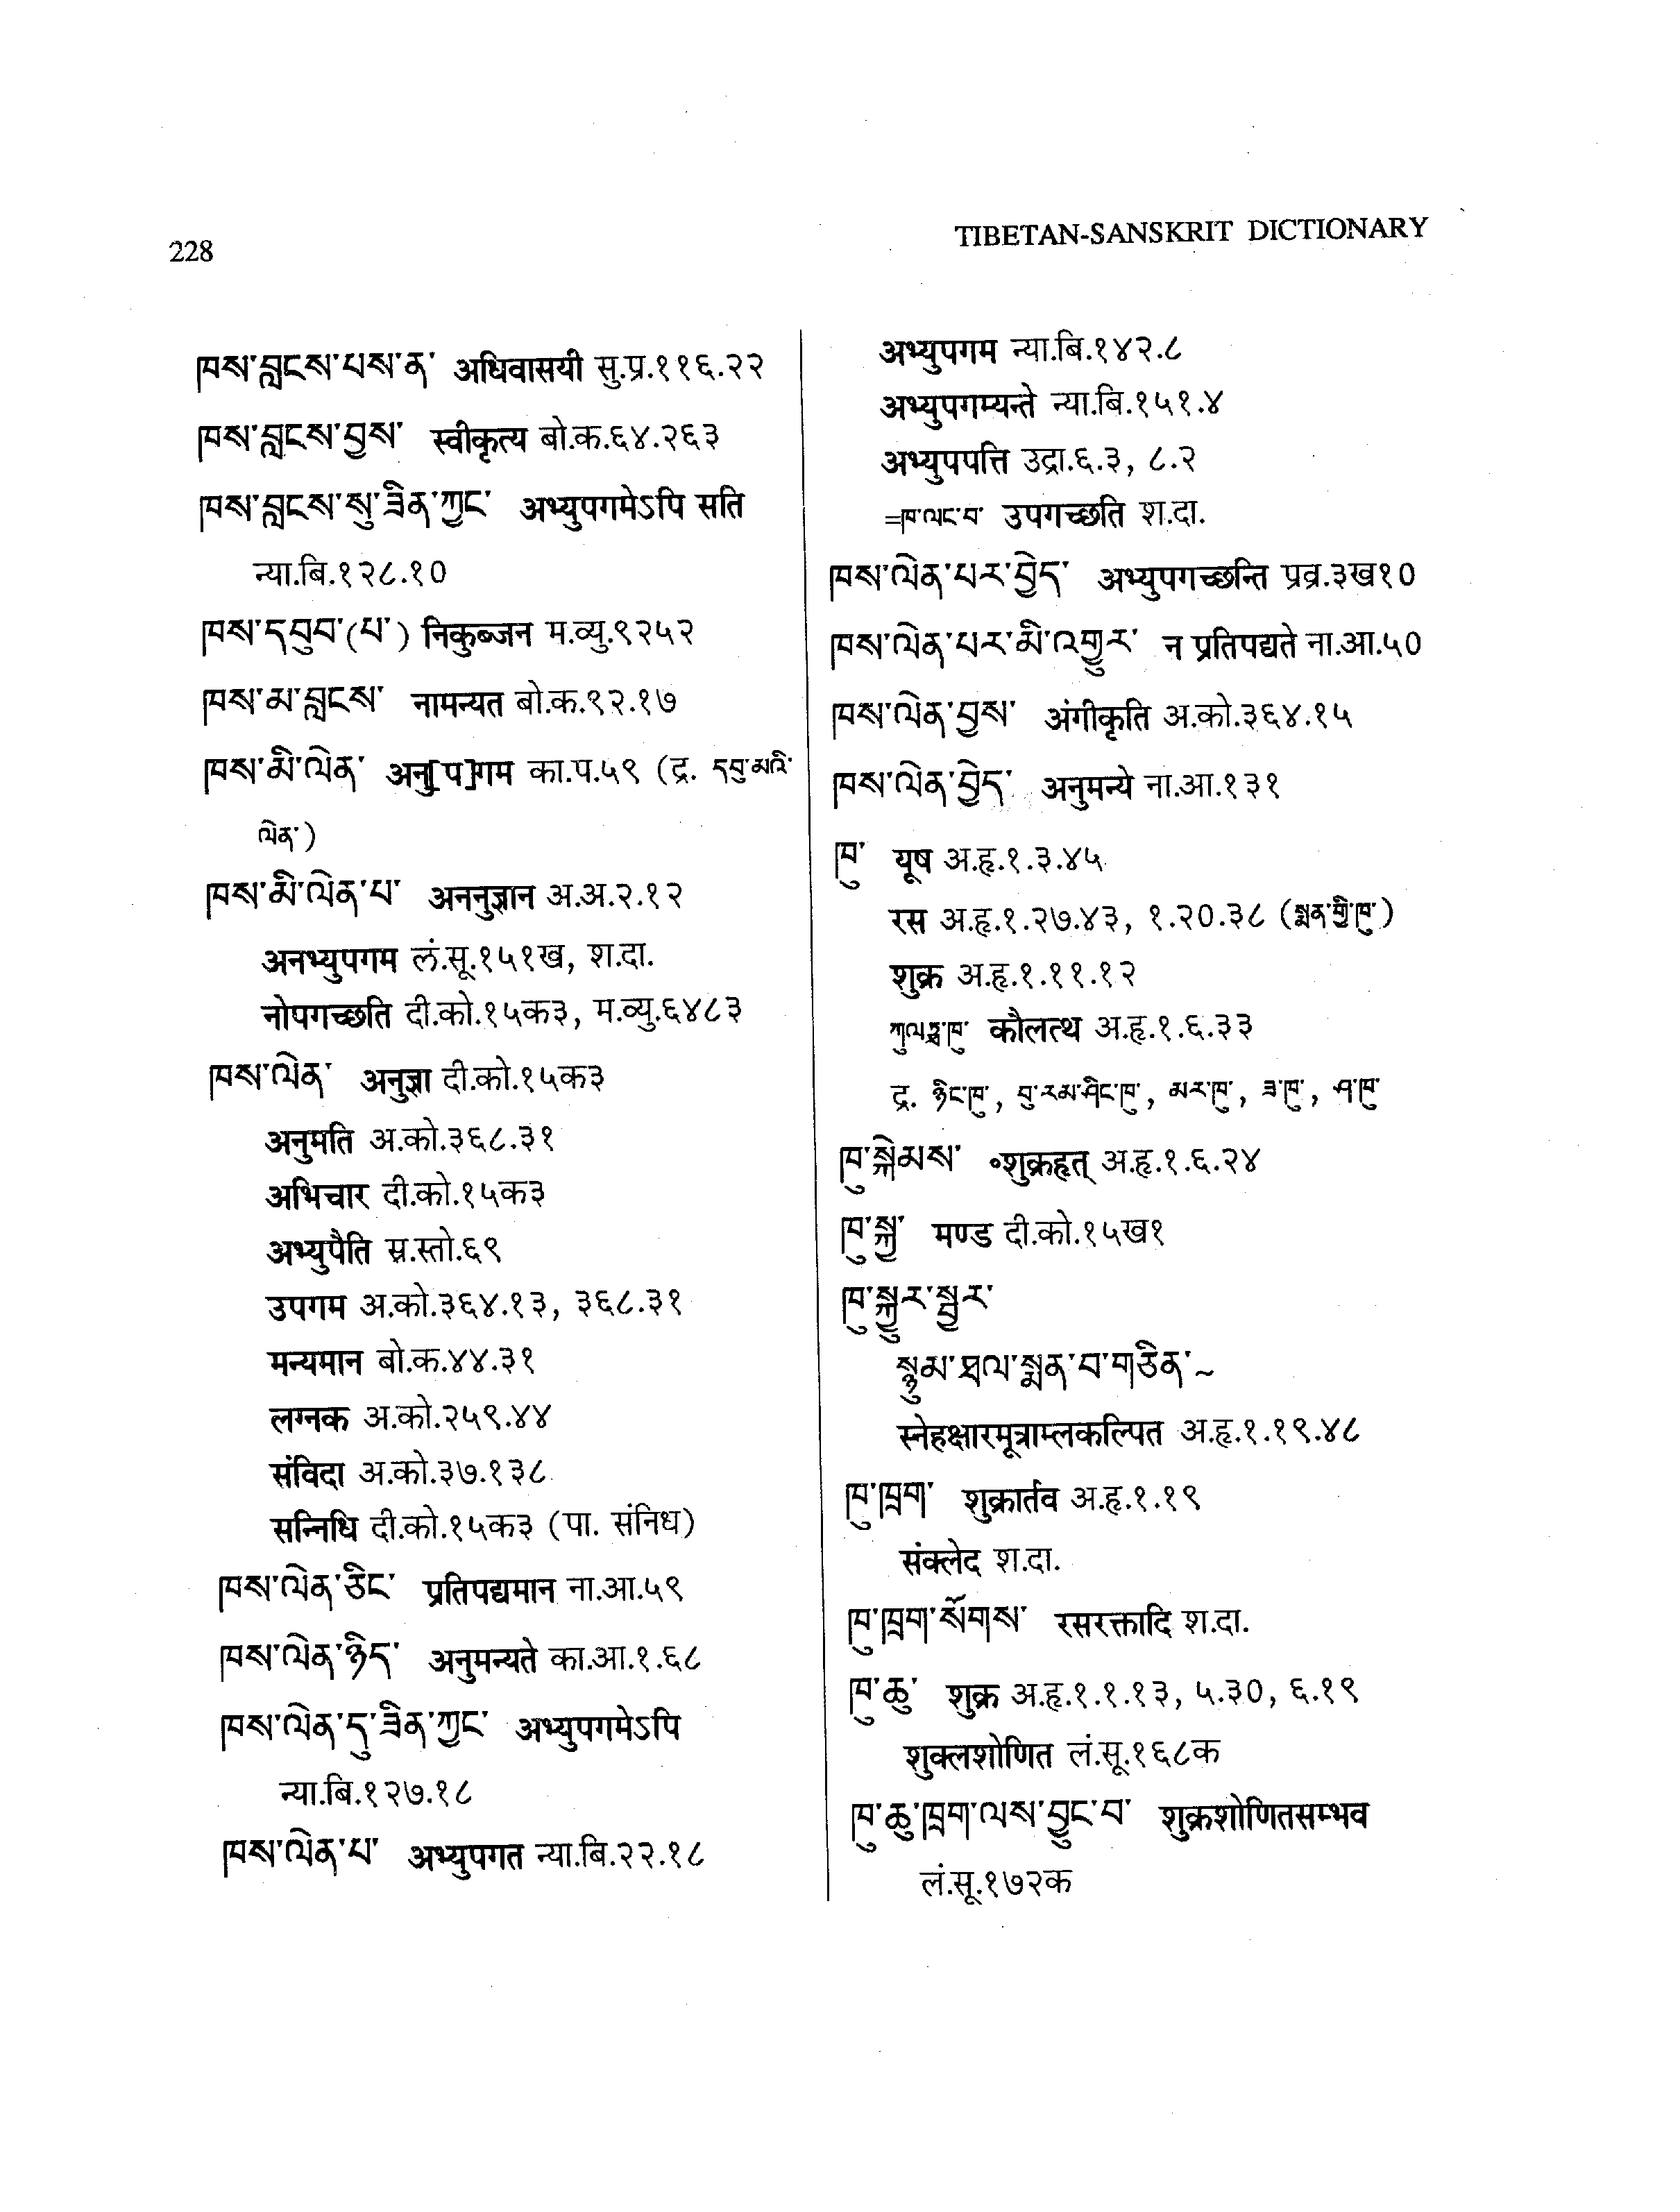 228
TIBETAN-SANSKRIT DICTIONARY
ཁས་བླངས་པས་ན་ अधिवासयी सु.प्र.११६.२२
ཁས་བླངས་བྱས་ स्वीकृत्य बो.क.६४.२६३
ཁས་བླངས་སུ་ཟིན་ཀྱང་ अभ्युपगमेऽपि सति
न्या.बि.१२८.१०
ཁས་དབུབ་(པ་) निकुब्जन म.व्यु.९२५२
ཁས་མ་བླངས་ नामन्यत बो.क.९२.१७
ཁས་མི་ལེན་ अनु[प]गम का.प.५९ (द्र. དབུ་མའི་
ལེན་)
ཁས་མི་ལེན་པ་ अननुज्ञान अ.अ.२.१२
अनभ्युपगम लं.सू.१५१ख, श.दा.
नोपगच्छति दी.को.१५क३, म.व्यु.६४८३
ཁས་ལེན་ अनुज्ञा दी.को.१५क३
अनुमति अ.को.३६८.३१
अभिचार दी.को.१५क३
अभ्युपैति स्र.स्तो.६९
उपगम अ.को.३६४.१३, ३६८.३१
मन्यमान बो.क.४४.३१
लग्नक अ.को.२५९.४४
संविदा अ.को.३७.१३८
सन्निधि दी.को.१५क३ (पा. संनिध)
ཁས་ལེན་ཅིང་ प्रतिपद्यमान ना.आ.५९
ཁས་ལེན་ཉིད་ अनुमन्यते का.आ.१.६८
ཁས་ལེན་དུ་ཟིན་ཀྱང་ अभ्युपगमेऽपि
न्या.बि.१२७.१८
ཁས་ལེན་པ་ अभ्युपगत न्या.बि.२२.१८
अभ्युपगम न्या.बि.१४२.८
अभ्युपगम्यन्ते न्या.बि.१५१.४
अभ्युपपत्ति उद्रा.६.३, ८.२
=ཁ་ལང་བ་ उपगच्छति श.दा.
ཁས་ལེན་པར་བྱེད་ अभ्युपगच्छन्ति प्रव्र.३ख१०
ཁས་ལེན་པར་མི་འགྱུར་ न प्रतिपद्यते ना.आ.५०
ཁས་ལེན་བྱས་ अंगीकृति अ.को.३६४.१५
ཁས་ལེན་བྱེད་ अनुमन्ये ना.आ.१३१
ཁུ་ यूष अ.हृ.१.३.४५
रस अ.हृ.१.२७.४३, १.२०.३८ (སྨན་གྱི་ཁུ་)
शुक्र अ.हृ.१.११.१२
ཀུལཏྠ་ཁུ་ कौलत्थ अ.हृ.१.६.३३
द्र. ཉིང་ཁུ་, བུ་རམ་ཤིང་ཁུ་, མར་ཁུ་, ཟ་ཁུ་, ཤ་ཁུ་
ཁུ་སྐེམས་ ॰शुक्रहृत् अ.हृ.१.६.२४
ཁུ་སྐྱ་ मण्ड दी.को.१५ख१
ཁུ་སྐྱུར་སྦྱར་
སྙུམ་ཐལ་སྨན་བ་གཅིན་~
स्नेहक्षारमूत्राम्लकल्पित अ.हृ.१.१९.४८
ཁུ་ཁྲག་ शुक्रार्तव अ.हृ.१.१९
संक्लेद श.दा.
ཁུ་ཁྲག་སོགས་ रसरक्तादि श.दा.
ཁུ་ཆུ་ शुक्र अ.हृ.१.१.१३, ५.३०, ६.१९
शुक्लशोणित लं.सू.१६८क
ཁུ་ཆུ་ཁྲག་ལས་བྱུང་བ་ शुक्रशोणितसम्भव
लं.सू.१७२क